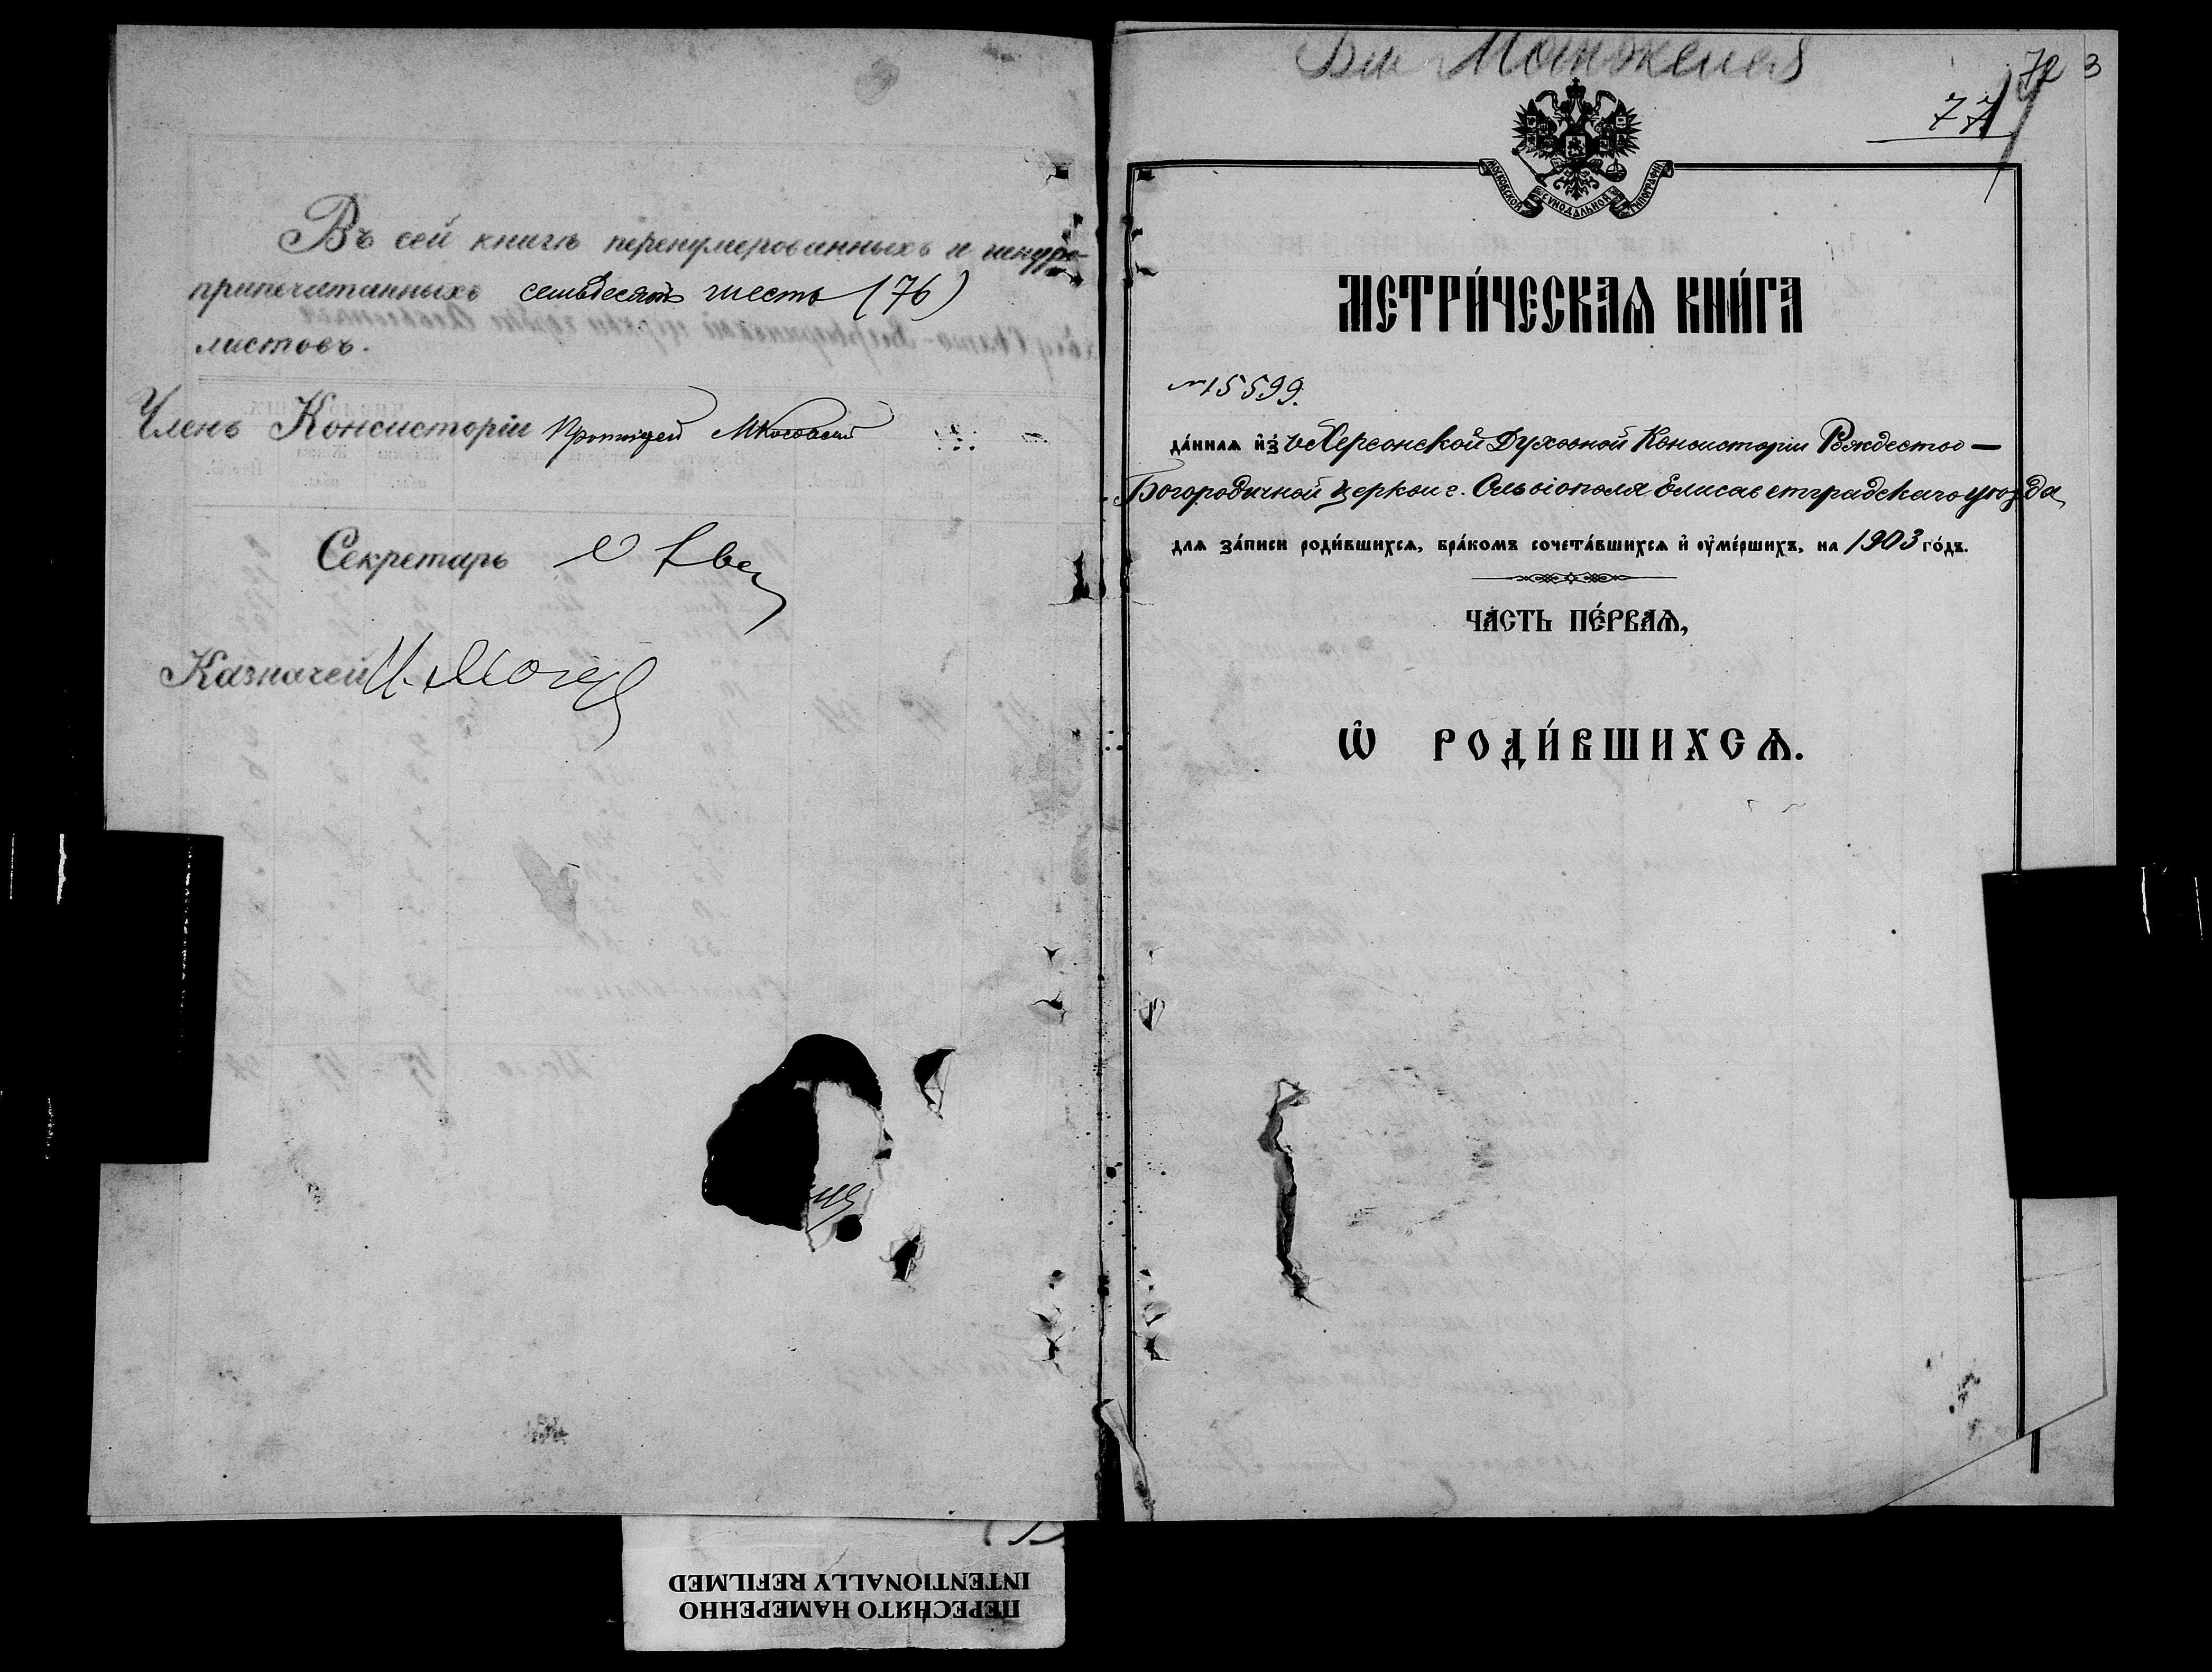 Въ сей книгѣ перенумерованныхъ и шнуро-
припечатанныхъ семьдесятъ шесть (76)
листовъ.
Членъ Консисторіи Протоіерей
Секретарь
Казначей И.
72 3
77
МОСКОВСКОЙ СѴНОДАЛЬНОЙ ТИПОГРАФІИ
МЕТРИ́ЧЕСКАѦ КНИ́ГА
№ 15599.
да́ннаѧ и҆з̾ Херсонской Духовной Консисторіи Рождество —
Богородичной церкви г. Ольвіополя Елисаветградскаго уѣзда,
для за́писи роди́вшихсѧ, бра́комъ сочета́вшихсѧ и҆ оу҆ме́ршихъ, на 1903 го́дъ.
ЧА́СТЬ ПЕ́РВАѦ,
Ѡ҆ РОДИ́ВШИХСѦ.
ПЕРЕСНЯТО НАМЕРЕННО
INTENTIONALLY REFILMED